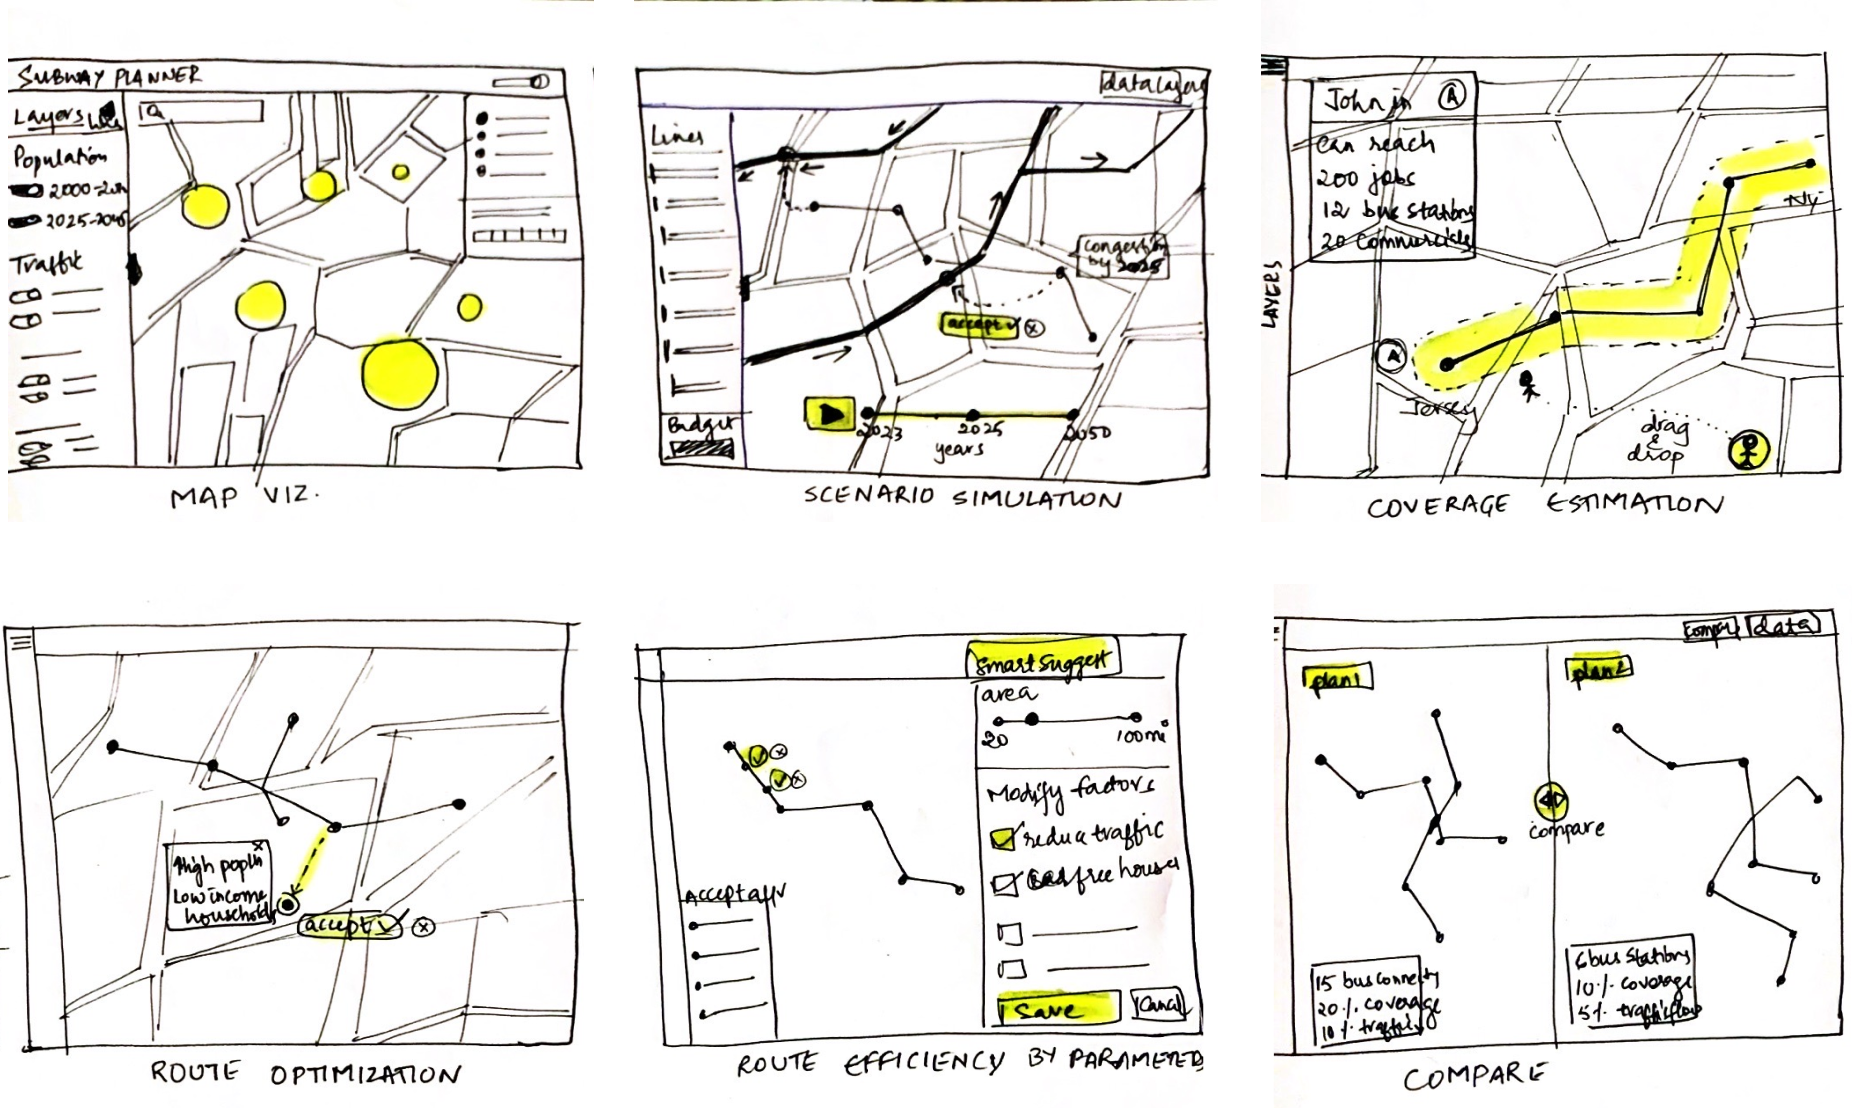 SUBWAY PLANNER
Layers
Population
2000-20
2025-2045
Traffic
MAP VIZ.
data layers
Lines
congestion
by 2025
accept ✓ ⓧ
Budget
2023 2025 2050
years
SCENARIO SIMULATION
LAYERS
John in Ⓐ
can reach
200 jobs
12 bus stations
20 commercials
NY
A
Jersey
drag
&
drop
COVERAGE ESTIMATION
x
High popln
Low income
households
accept ✓ ⓧ
ROUTE OPTIMIZATION
Smart Suggest
area
20 100mi
Modify factors
reduce traffic
free houses
Accept all ✓
Save Cancel
ROUTE EFFICIENCY BY PARAMETERS
Compare data
plan1
plan2
compare
15 bus connecty
20% coverage
10% traffic
6 bus stations
10% coverage
5% trafficflow
COMPARE